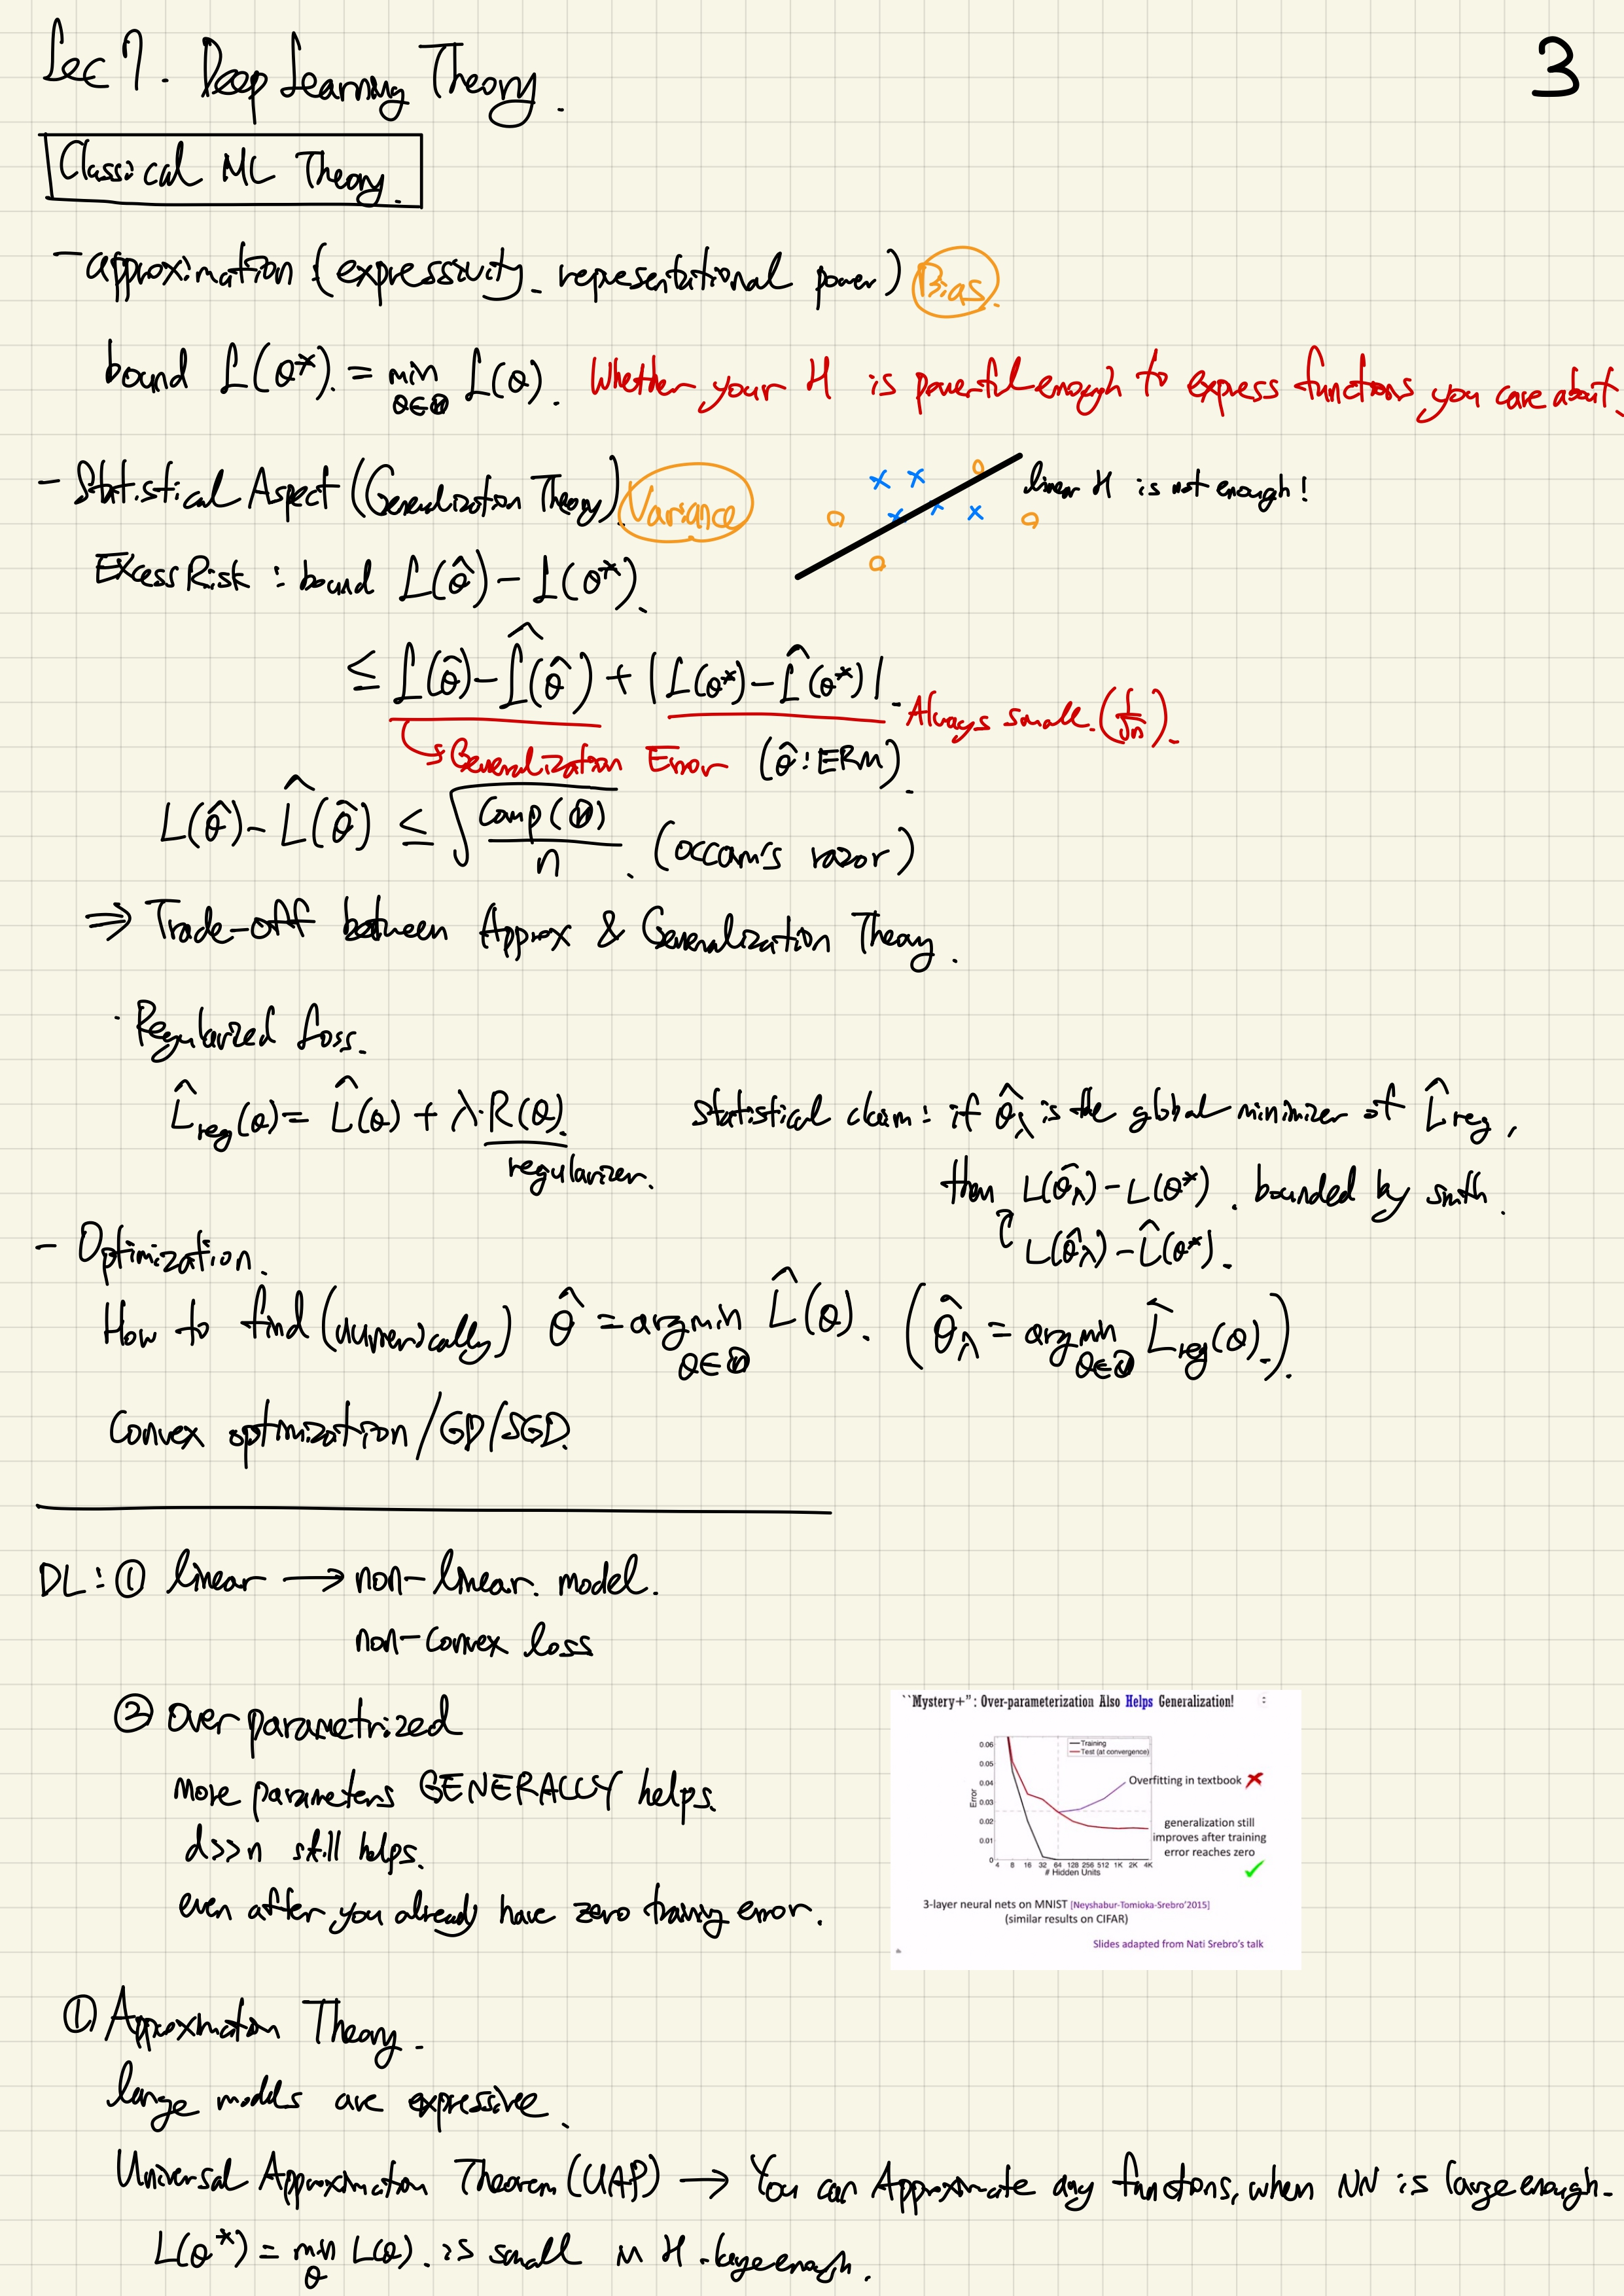 Lec 7. Deep Learning Theory.
3
Classical ML Theory.
- approximation (expressivity, representational power) Bias.
bound L(θ*) = min_{θ∈Θ} L(θ). Whether your H is powerful enough to express functions you care about.
- Statistical Aspect (Generalization Theory). Variance
linear H is not enough!
Excess Risk : bound L(θ̂) - L(θ*).
≤ L(θ̂) - L̂(θ̂) + |L(θ*) - L̂(θ*)|. Always small. (1/√n).
↳ Generalization Error (θ̂ : ERM).
L(θ̂) - L̂(θ̂) ≤ √(Comp(Θ)/n). (occam's razor)
⇒ Trade-off between Approx & Generalization Theory.
· Regularized Loss.
L̂reg(θ) = L̂(θ) + λ·R(θ).
regularizer.
Statistical claim : if θ̂λ is the global minimizer of L̂reg,
then L(θ̂λ) - L(θ*). bounded by smth.
L(θ̂λ) - L̂(θ*).
- Optimization.
How to find (numerically) θ̂ = argmin_{θ∈Θ} L̂(θ). (θ̂λ = argmin_{θ∈Θ} L̂reg(θ).).
Convex optimization/GD/SGD.
DL : ① linear → non-linear. model.
non-convex loss
② over parametrized
more parameters GENERALLY helps.
d>>n still helps.
even after you already have zero training error.
``Mystery+": Over-parameterization Also Helps Generalization!
Training
Test (at convergence)
0.06
0.05
0.04
0.03
0.02
0.01
0
Error
4 8 16 32 64 128 256 512 1K 2K 4K
# Hidden Units
Overfitting in textbook
generalization still
improves after training
error reaches zero
3-layer neural nets on MNIST [Neyshabur-Tomioka-Srebro'2015]
(similar results on CIFAR)
Slides adapted from Nati Srebro's talk
① Approximation Theory.
large models are expressive.
Universal Approximation Theorem (UAP) → You can Approximate any functions, when NN is large enough.
L(θ*) = min_θ L(θ). is small in H. large enough.